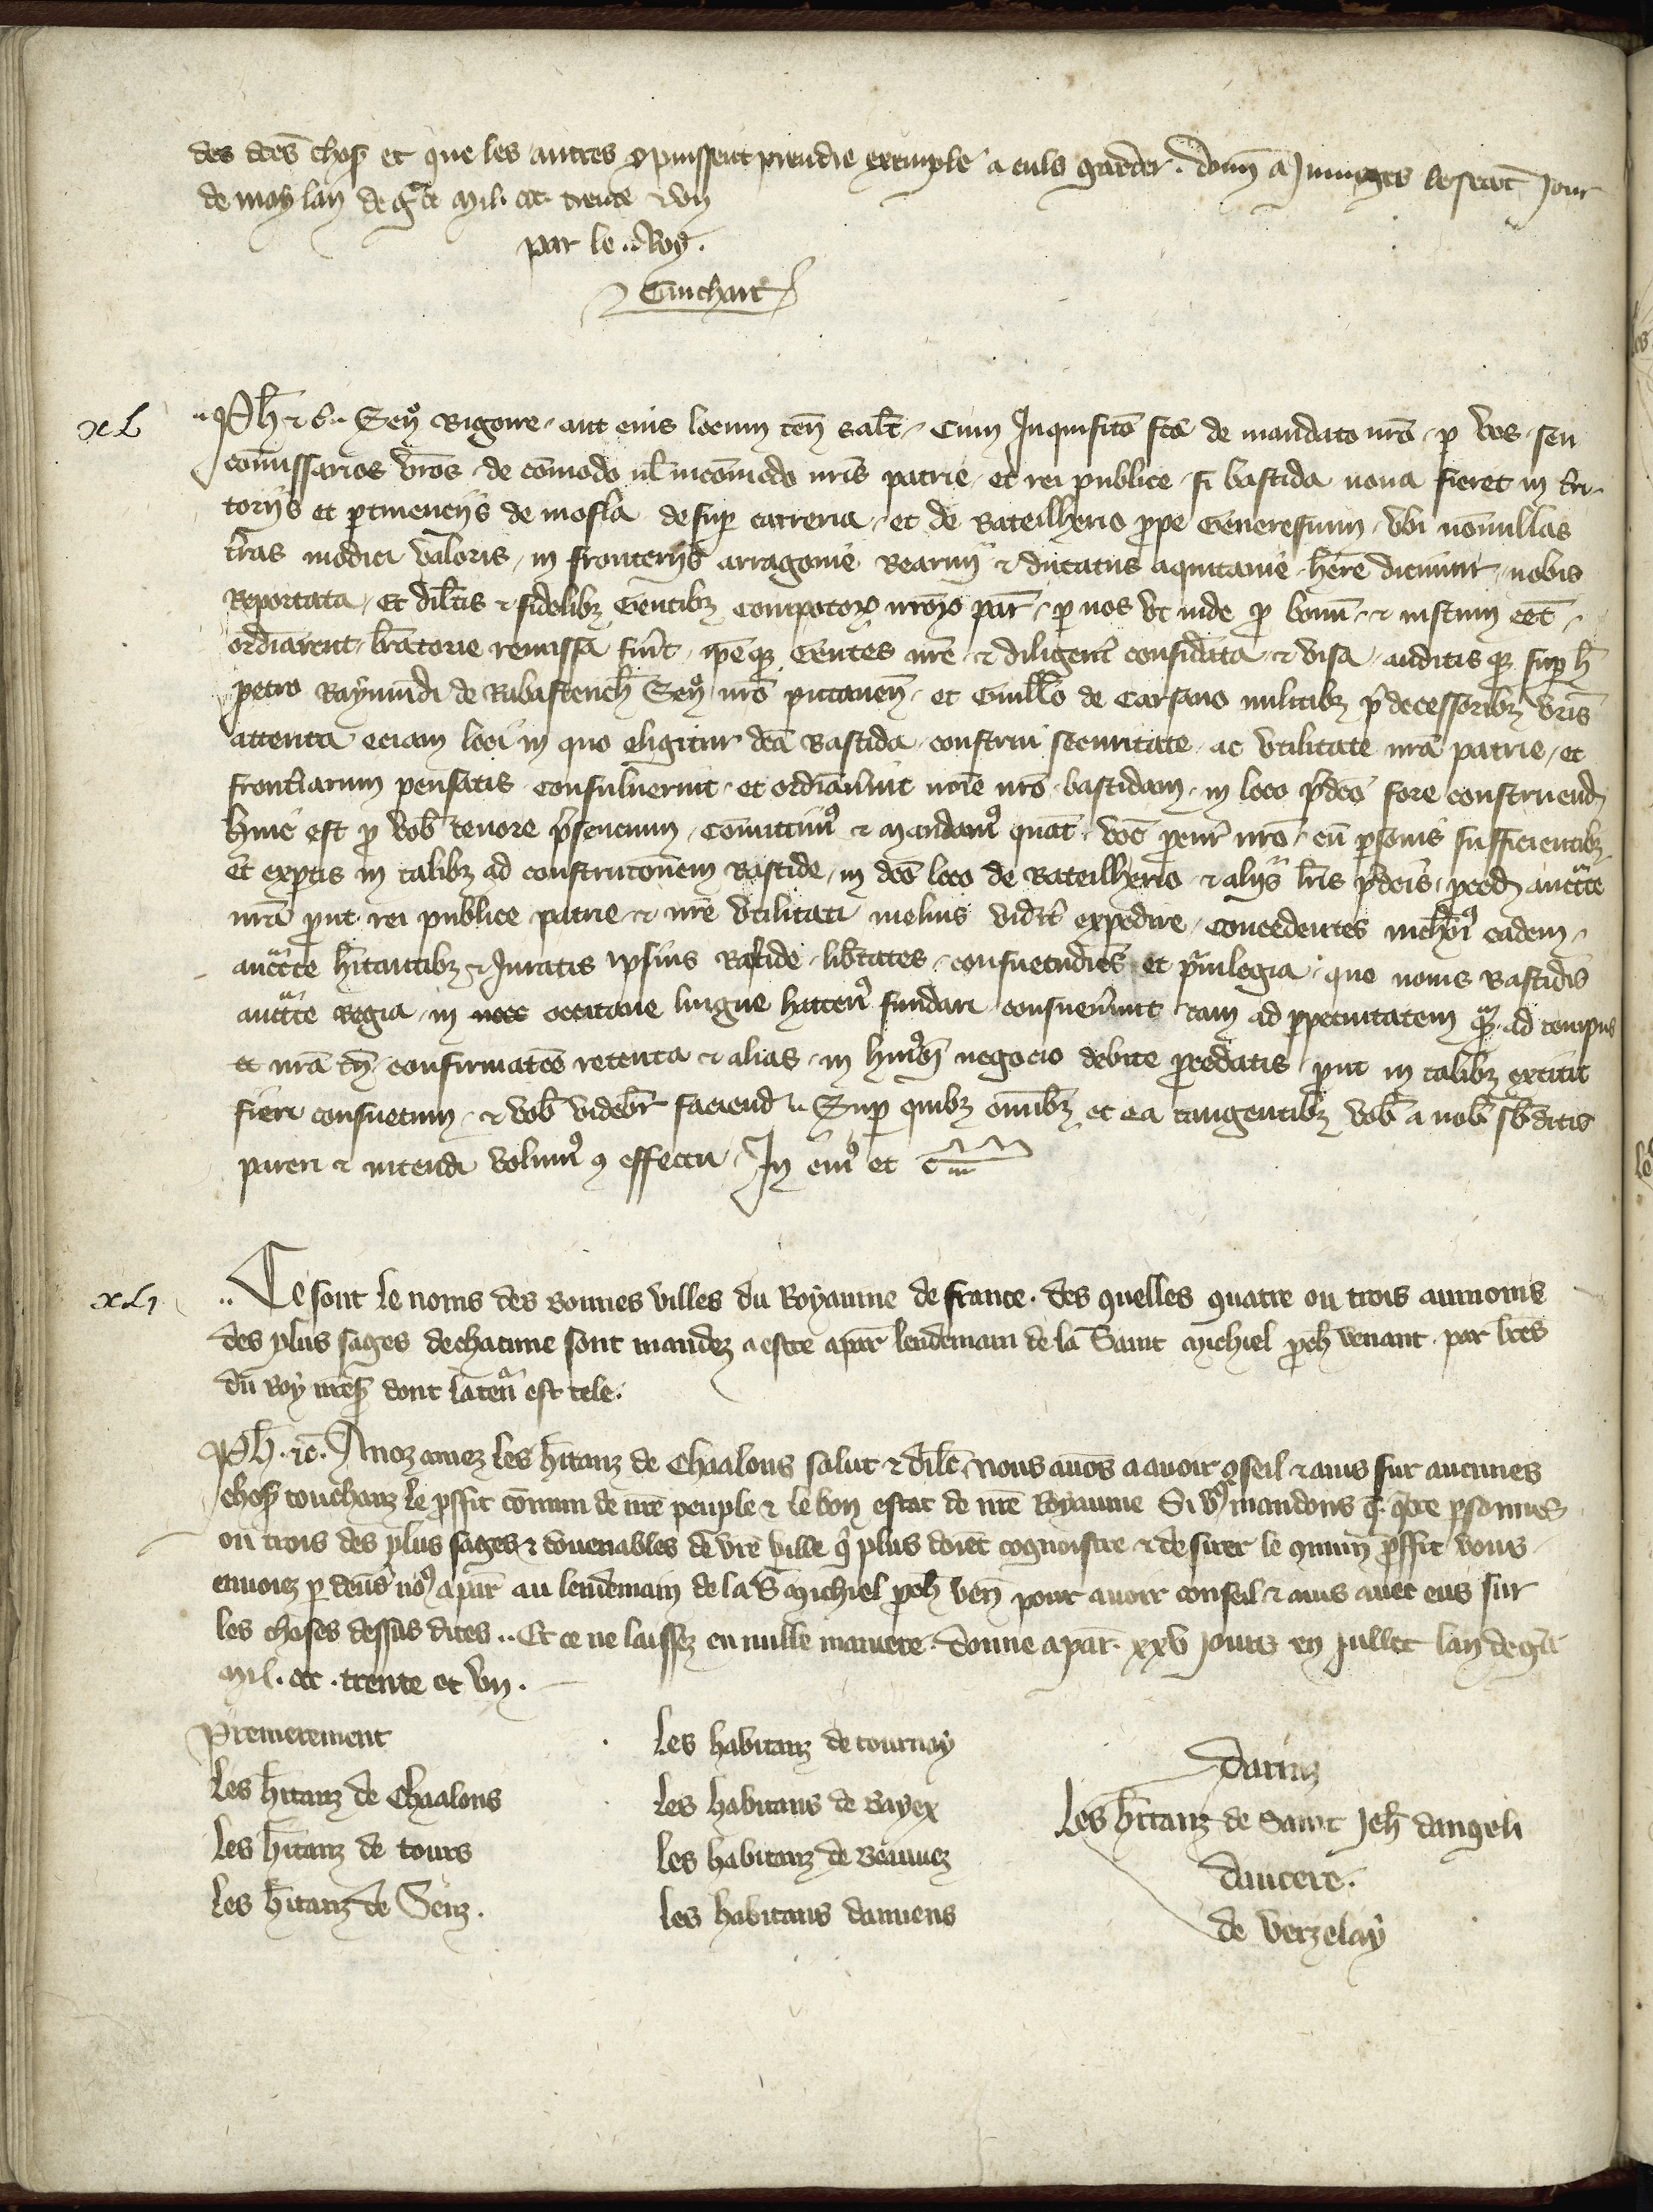 des dces chos et que les autres ypuissent prendre exemple a euls garder. donn a Jumieges le secont Jour
de may lan de grace mil. ccc. trente & un
par le .. Roy.
Guichart
xl
.. Ph & c.. Sen Bigorre. aut eius locum ten salt. Cum Inquisito fca de mandato nro. p vos. seu
comissarios vros. de comodo ul incomodo nris patrie. et rei publice. si bastida nova fieret in tri-
toriis et ptinenciis de mosla desup carreria. et de Bateilherio ppe Generestium. ubi nonnullas
tras modici valoris, in fronteriis arragonie Bearnii & ducatus aquitanie. here dicimur. nobis
Reportata. Et diltis & fidelibz Gentibz compotorum nrorum par. p nos ut inde p bonum. & iustum eet.
ordiarent. lratorie remissa fuit. ipeqz Gentes nre. & diligent considata & visa. auditis qz sup h
petro Raymundi de Rabastench Sen nro pictaven. et Guillo de Carsano militibz pdecessoribz vris
attenta eciam loci in quo eligitur dca Bastida. construi securitate. ac utilitate nra patrie. et
fronterarum pensatis. consuluerunt. et ordiaverunt noie nro bastidam. in loco pdco fore construend
hinc est p vob tenore psencium. comittim & mandam quat. voc pcur nro. cu psonis sufficientibz
et exptis in talibz ad construcconem Bastide. in dco loco de Bateilherio & aliis lris pdcis. pced aucte
nra put rei publice patrie & nre utilitati melius vidit expedire. concedentes nichoi eadem.
aucte hitantibz & Juratis ipsius Bastide. libtates. consuetudies et pvilegia. que novis Bastidis
aucte Regia. in nocc occitane lingue hacten fundari consueverunt tam ad ppetuitatem qz ad tempus
et nra tn confirmatoe retenta & alias. in humoi negocio debite pcedatis. put in talibz extitit
fieri consuetum. & vob videbr faciend.. Sup quibz omibz et ea tangentibz vob a nob sbditis
pareri & intendi volum 9 effectu. In cui et c
xli
.. Ce sont le noms des Bonnes villes du Royaume de france. des quelles quatre ou trois aumoins
des plus sages de chacune sont mandez a estre a par lendemain de la Saint Michiel pch venant. par lres
du Roy nres dont la tenr est tele.
Ph. &c. A noz amez les hitanz de Chaalons salut & dilc. Nous avos a avoir 9seil & avis sur aucunes
chos touchanz le pffit commun de nre peuple & le bon estat de nre Royaume Si v9 mandons q. qtre psonnes
ou trois des plus sages & 9venables de vre ville q plus doiet cognoistre & desirer le 9mun pffit vous
envoiez p devs no9 a par au lendemain de la S Michiel pch ven pour avoir conseil & avis avec eus sur
les choses dessus dites.. Et ce ne laissez en nulle maniere. donne a par. xxv jours en Jullet lan de gra
mil. ccc. trente et un.
Premierement
Les hitanz de Chaalons
Les hitanz de tours
Les hitanz de Senz.
Les habitanz de tournay
Les habitans de Bayex
Les habitanz de Beauvez
Les habitans damiens
Darraz
Les hitanz de Saint Jeh dangeli
Daucere.
de Verzelay